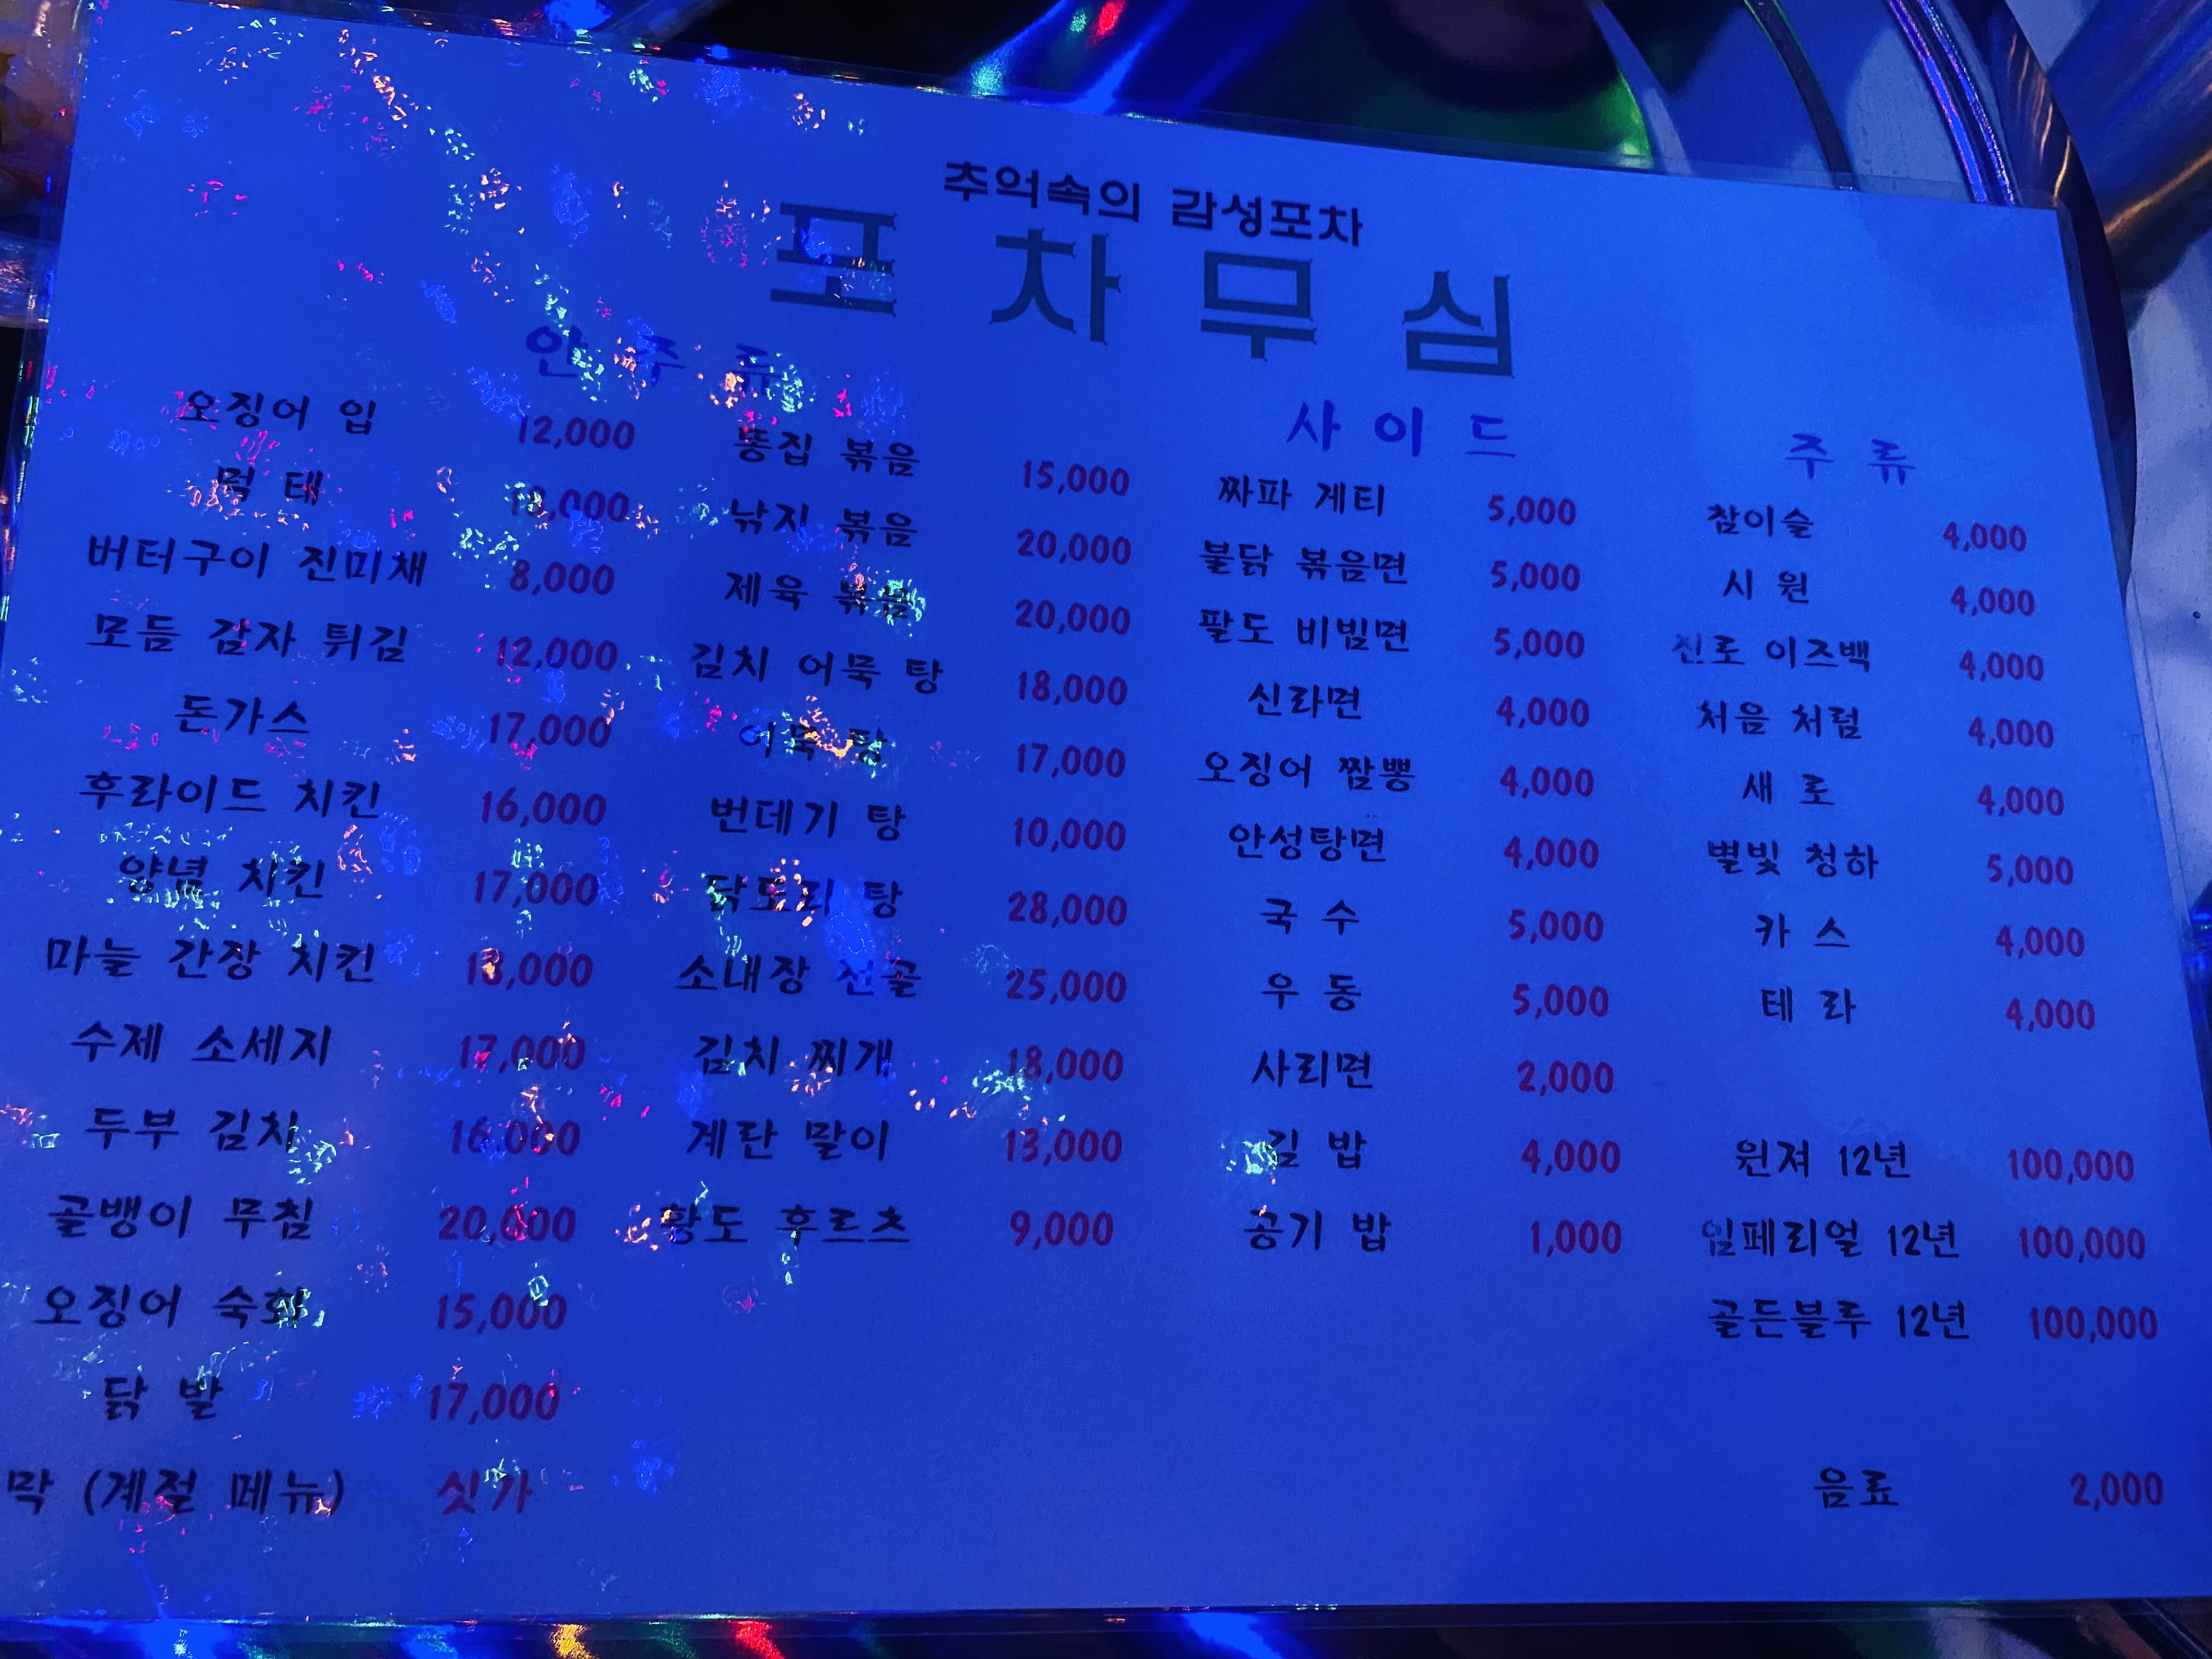 추억속의 감성포차
포 차 무 심
안 주 류
오징어 입 12,000
먹 태
버터구이 진미채 8,000
모듬 감자 튀김 12,000
돈가스 17,000
후라이드 치킨 16,000
양념 치킨 17,000
마늘 간장 치킨 18,000
수제 소세지 17,000
두부 김치 16,000
골뱅이 무침 20,000
오징어 숙회 15,000
닭 발 17,000
막 (계절 메뉴) 싯가
똥집 볶음 15,000
낚지 볶음 20,000
제육 볶음 20,000
김치 어묵 탕 18,000
어묵 탕 17,000
번데기 탕 10,000
닭도리 탕 28,000
소내장 전골 25,000
김치 찌개 18,000
계란 말이 13,000
황도 후르츠 9,000
사 이 드
짜파 게티 5,000
불닭 볶음면 5,000
팔도 비빔면 5,000
신라면 4,000
오징어 짬뽕 4,000
안성탕면 4,000
국 수 5,000
우 동 5,000
사리면 2,000
김 밥 4,000
공기 밥 1,000
주 류
참이슬 4,000
시 원 4,000
진로 이즈백 4,000
처음 처럼 4,000
새 로 4,000
별빛 청하 5,000
카 스 4,000
테 라 4,000
윈져 12년 100,000
임페리얼 12년 100,000
골든블루 12년 100,000
음료 2,000